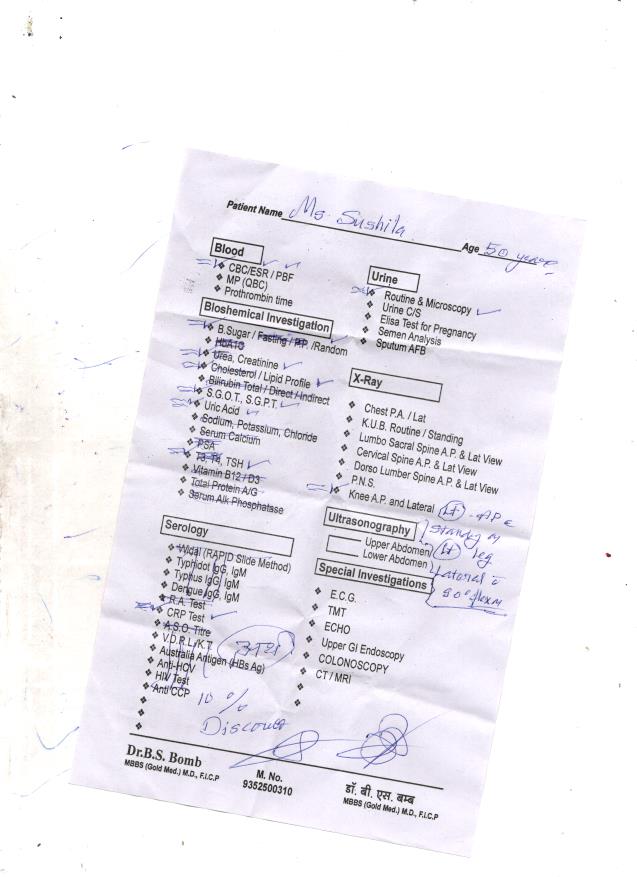 Patient Name Ms. Sushila
Age 50 years
Blood
CBC/ESR / PBF
MP (QBC)
Prothrombin time
Bioshemical Investigation
B.Sugar / Fasting / PP /Random
HbA1C
Urea, Creatinine
Cholesterol / Lipid Profile
Bilirubin Total / Direct / Indirect
S.G.O.T., S.G.P.T.
Uric Acid
Sodium, Potassium, Chloride
Serum Calcium
PSA
T3, T4, TSH
Vitamin B12 / D3
Total Protein A/G
Serum Alk Phosphatase
Serology
Widal (RAPID Slide Method)
Typhidot IgG, IgM
Typhus IgG, IgM
Dengue IgG, IgM
R.A. Test
CRP Test
A.S.O. Titre
V.D.R.L./K.T.
Australia Antigen (HBs Ag)
Anti-HCV
HIV Test
Anti CCP
10 %
Discount
Urine
Routine & Microscopy
Urine C/S
Elisa Test for Pregnancy
Semen Analysis
Sputum AFB
X-Ray
Chest P.A. / Lat
K.U.B. Routine / Standing
Lumbo Sacral Spine A.P. & Lat View
Cervical Spine A.P. & Lat View
Dorso Lumber Spine A.P. & Lat View
P.N.S.
Knee A.P. and Lateral Lt - AP c
Standing on
Lt leg
Lateral c
90° flexn
Ultrasonography
Upper Abdomen/
Lower Abdomen
Special Investigations
E.C.G.
TMT
ECHO
Upper GI Endoscopy
COLONOSCOPY
CT / MRI
Dr.B.S. Bomb
MBBS (Gold Med.) M.D., F.I.C.P
M. No.
9352500310
डॉ. बी. एस. बम्ब
MBBS (Gold Med.) M.D., F.I.C.P